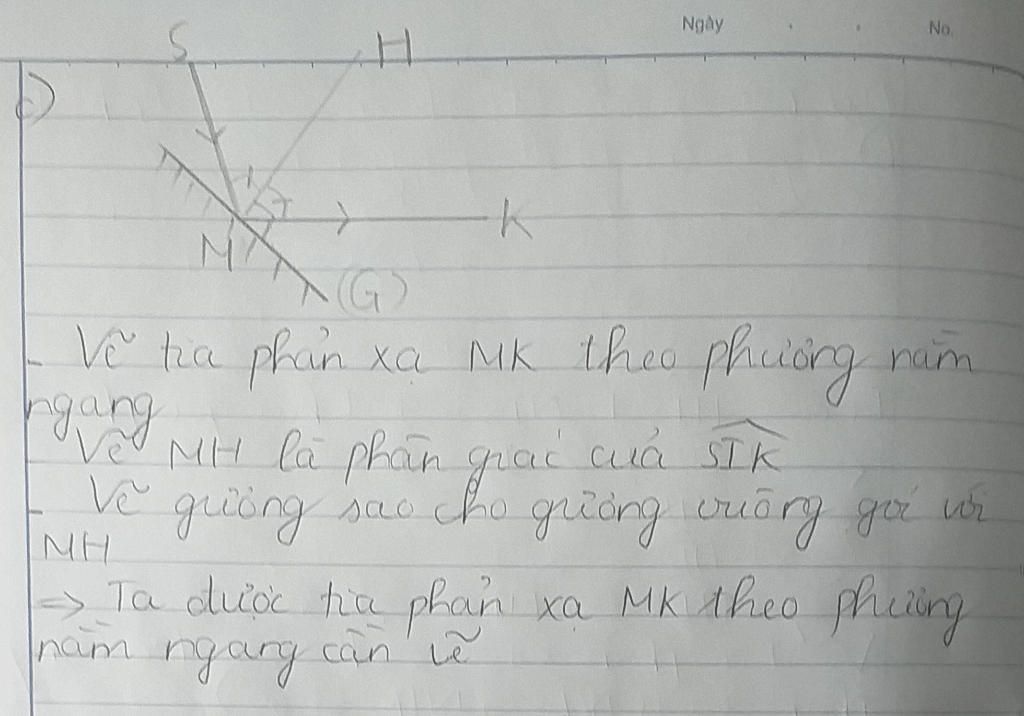 Ngày No.
S H
c)
M K
(G)
- Vẽ tia phản xạ MK theo phương nằm
ngang
Vẽ MH là phân giác của STK
- Vẽ gương sao cho gương vuông góc với
MH
=> Ta được tia phản xạ MK theo phương
nằm ngang cần vẽ